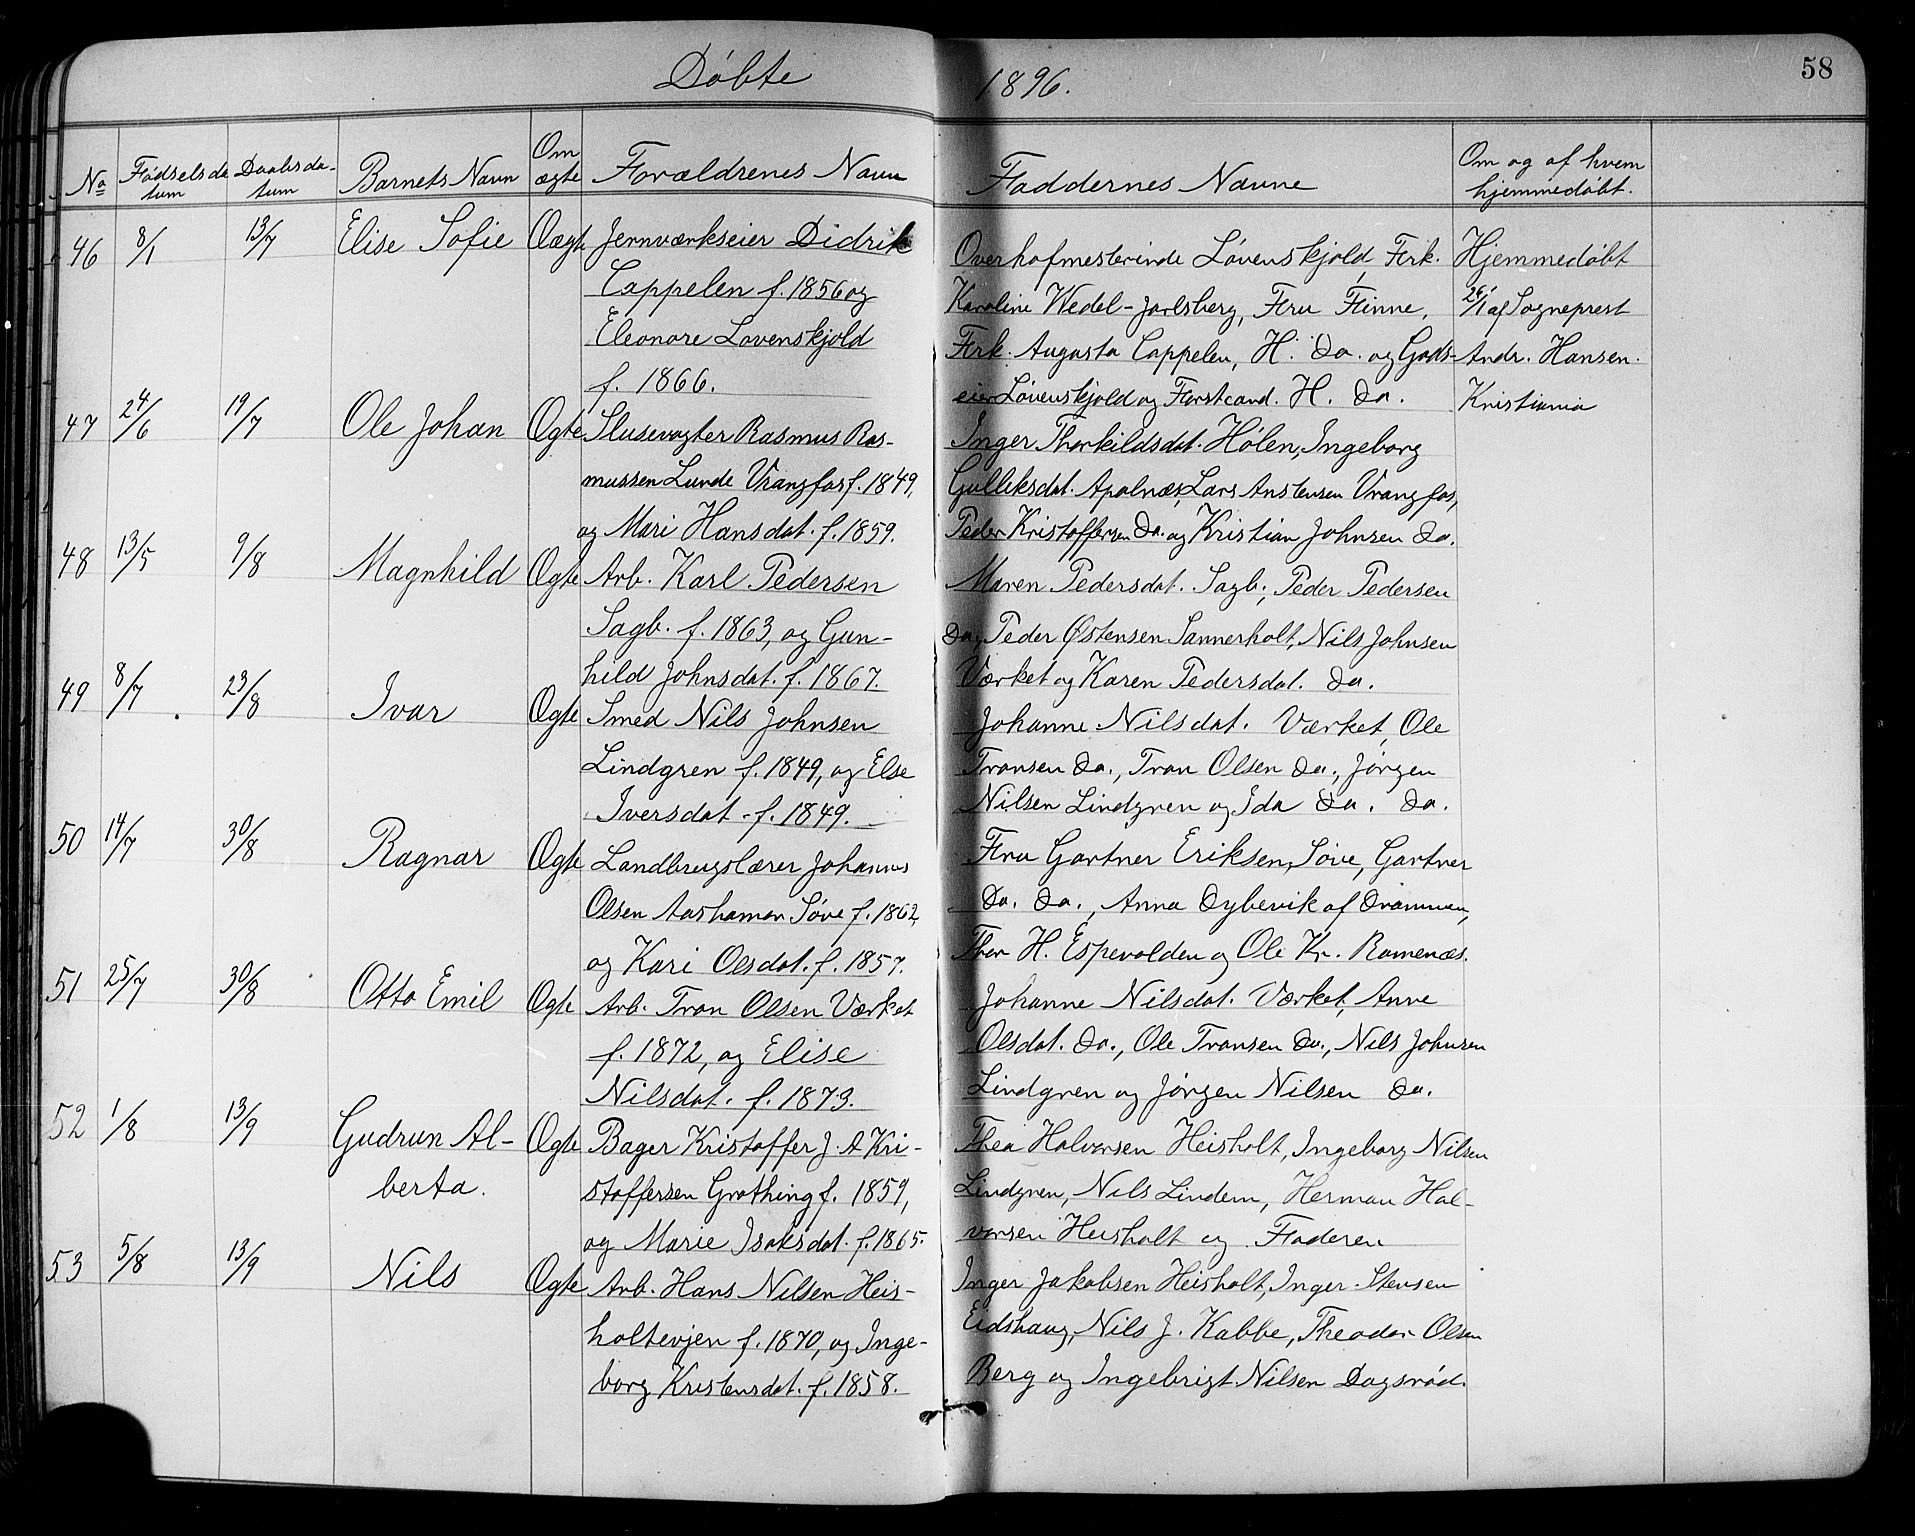 Döbte 1896. 58
No Fødselsda- Daabsda- Barnets Navn Om Forældrenes Navn Faddernes Navne Om og af hvem
tum tum ægte hjemmedøbt.
46 8/1 13/7 Elise Sofie Ægte Jernværkseier Didrik
Cappelen f. 1856 og
Eleonore Løvenskjold
f. 1866.
Overhofmesterinde Løvenskjold, Frk.
Karoline Wedel-Jarlsberg, Fru Finne,
Frk. Augusta Cappelen, H. Do. og Gods-
eier Løvenskjold og Forstcand. H. Do.
Hjemmedøbt
26/1 af Sogneprest
Andr. Hansen.
Kristiania
47 24/6 19/7 Ole Johan Ægte Slusevogter Rasmus Ras-
mussen Lunde Vrangfos f. 1849,
og Mari Hansdat. f. 1859.
Inger Thorkildsdat. Hølen, Ingeborg
Gulliksdat. Apalnæs, Lars Anstensen Vrangfos,
Peder Kristoffersen Do. og Kristian Johnsen Do.
48 13/5 9/8 Magnhild Ægte Arb. Karl Pedersen
Sagb. f. 1863, og Gun-
hild Johnsdat. f. 1867.
Maren Pedersdat. Sagb., Peder Pedersen
Do., Peder Østensen Sannerholt, Nils Johnsen
Værket og Karen Pedersdat. Do.
49 8/7 23/8 Ivar Ægte Smed Nils Johnsen
Lindgren f. 1849, og Else
Iversdat. f. 1849.
Johanne Nilsdat. Værket, Ole
Transen Do., Tran Olsen Do., Jørgen
Nilsen Lindgren og Ida Do. Do.
50 14/7 30/8 Ragnar Ægte Landbrugslærer Johannes
Olsen Aashamar Søve f. 1862,
og Kari Olsdat. f. 1857.
Fru Gartner Eriksen, Søve, Gartner
Do. Do., Anna Dybevik af Drammen,
Thor H. Espevolden og Ole Kr. Romenæs.
51 25/7 30/8 Otto Emil Ægte Arb. Tran Olsen Værket
f. 1872, og Elise
Nilsdat. f. 1873.
Johanne Nilsdat. Værket, Anne
Olsdat. Do., Ole Transen Do., Nils Johnsen
Lindgren og Jørgen Nilsen Do.
52 1/8 13/9 Gudrun Al- Ægte Bager Kristoffer J. A. Kri-
berta. stoffersen Grothing f. 1859,
og Marie Isaksdat. f. 1865.
Thea Halvorsen Heisholt, Ingeborg Nilsen
Lindgren, Nils Lindem, Herman Hal-
vorsen Heisholt og Faderen
53 5/8 13/9 Nils Ægte Arb. Hans Nilsen Heis-
holtevjen f. 1870, og Inge-
borg Kristensdat. f. 1858.
Inger Jakobsen Heisholt, Inger Stensen
Eidshaug, Nils J. Kabbe, Theodor Olsen
Berg og Ingebrigt Nilsen Dagsrød.